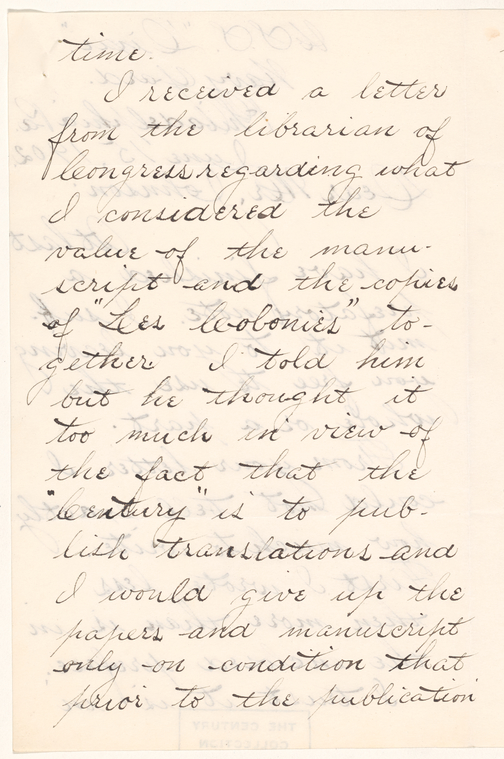 time.
I received a letter
from the librarian of
Congress regarding what
I considered the
value of the manu-
script and the copies
of "Les Colonies" to-
gether. I told him
but he thought it
too much in view of
the fact that the
"Century" is to pub-
lish translations and
I would give up the
papers and manuscript
only on condition that
prior to the publication
THE CENTURY
COLLECTION